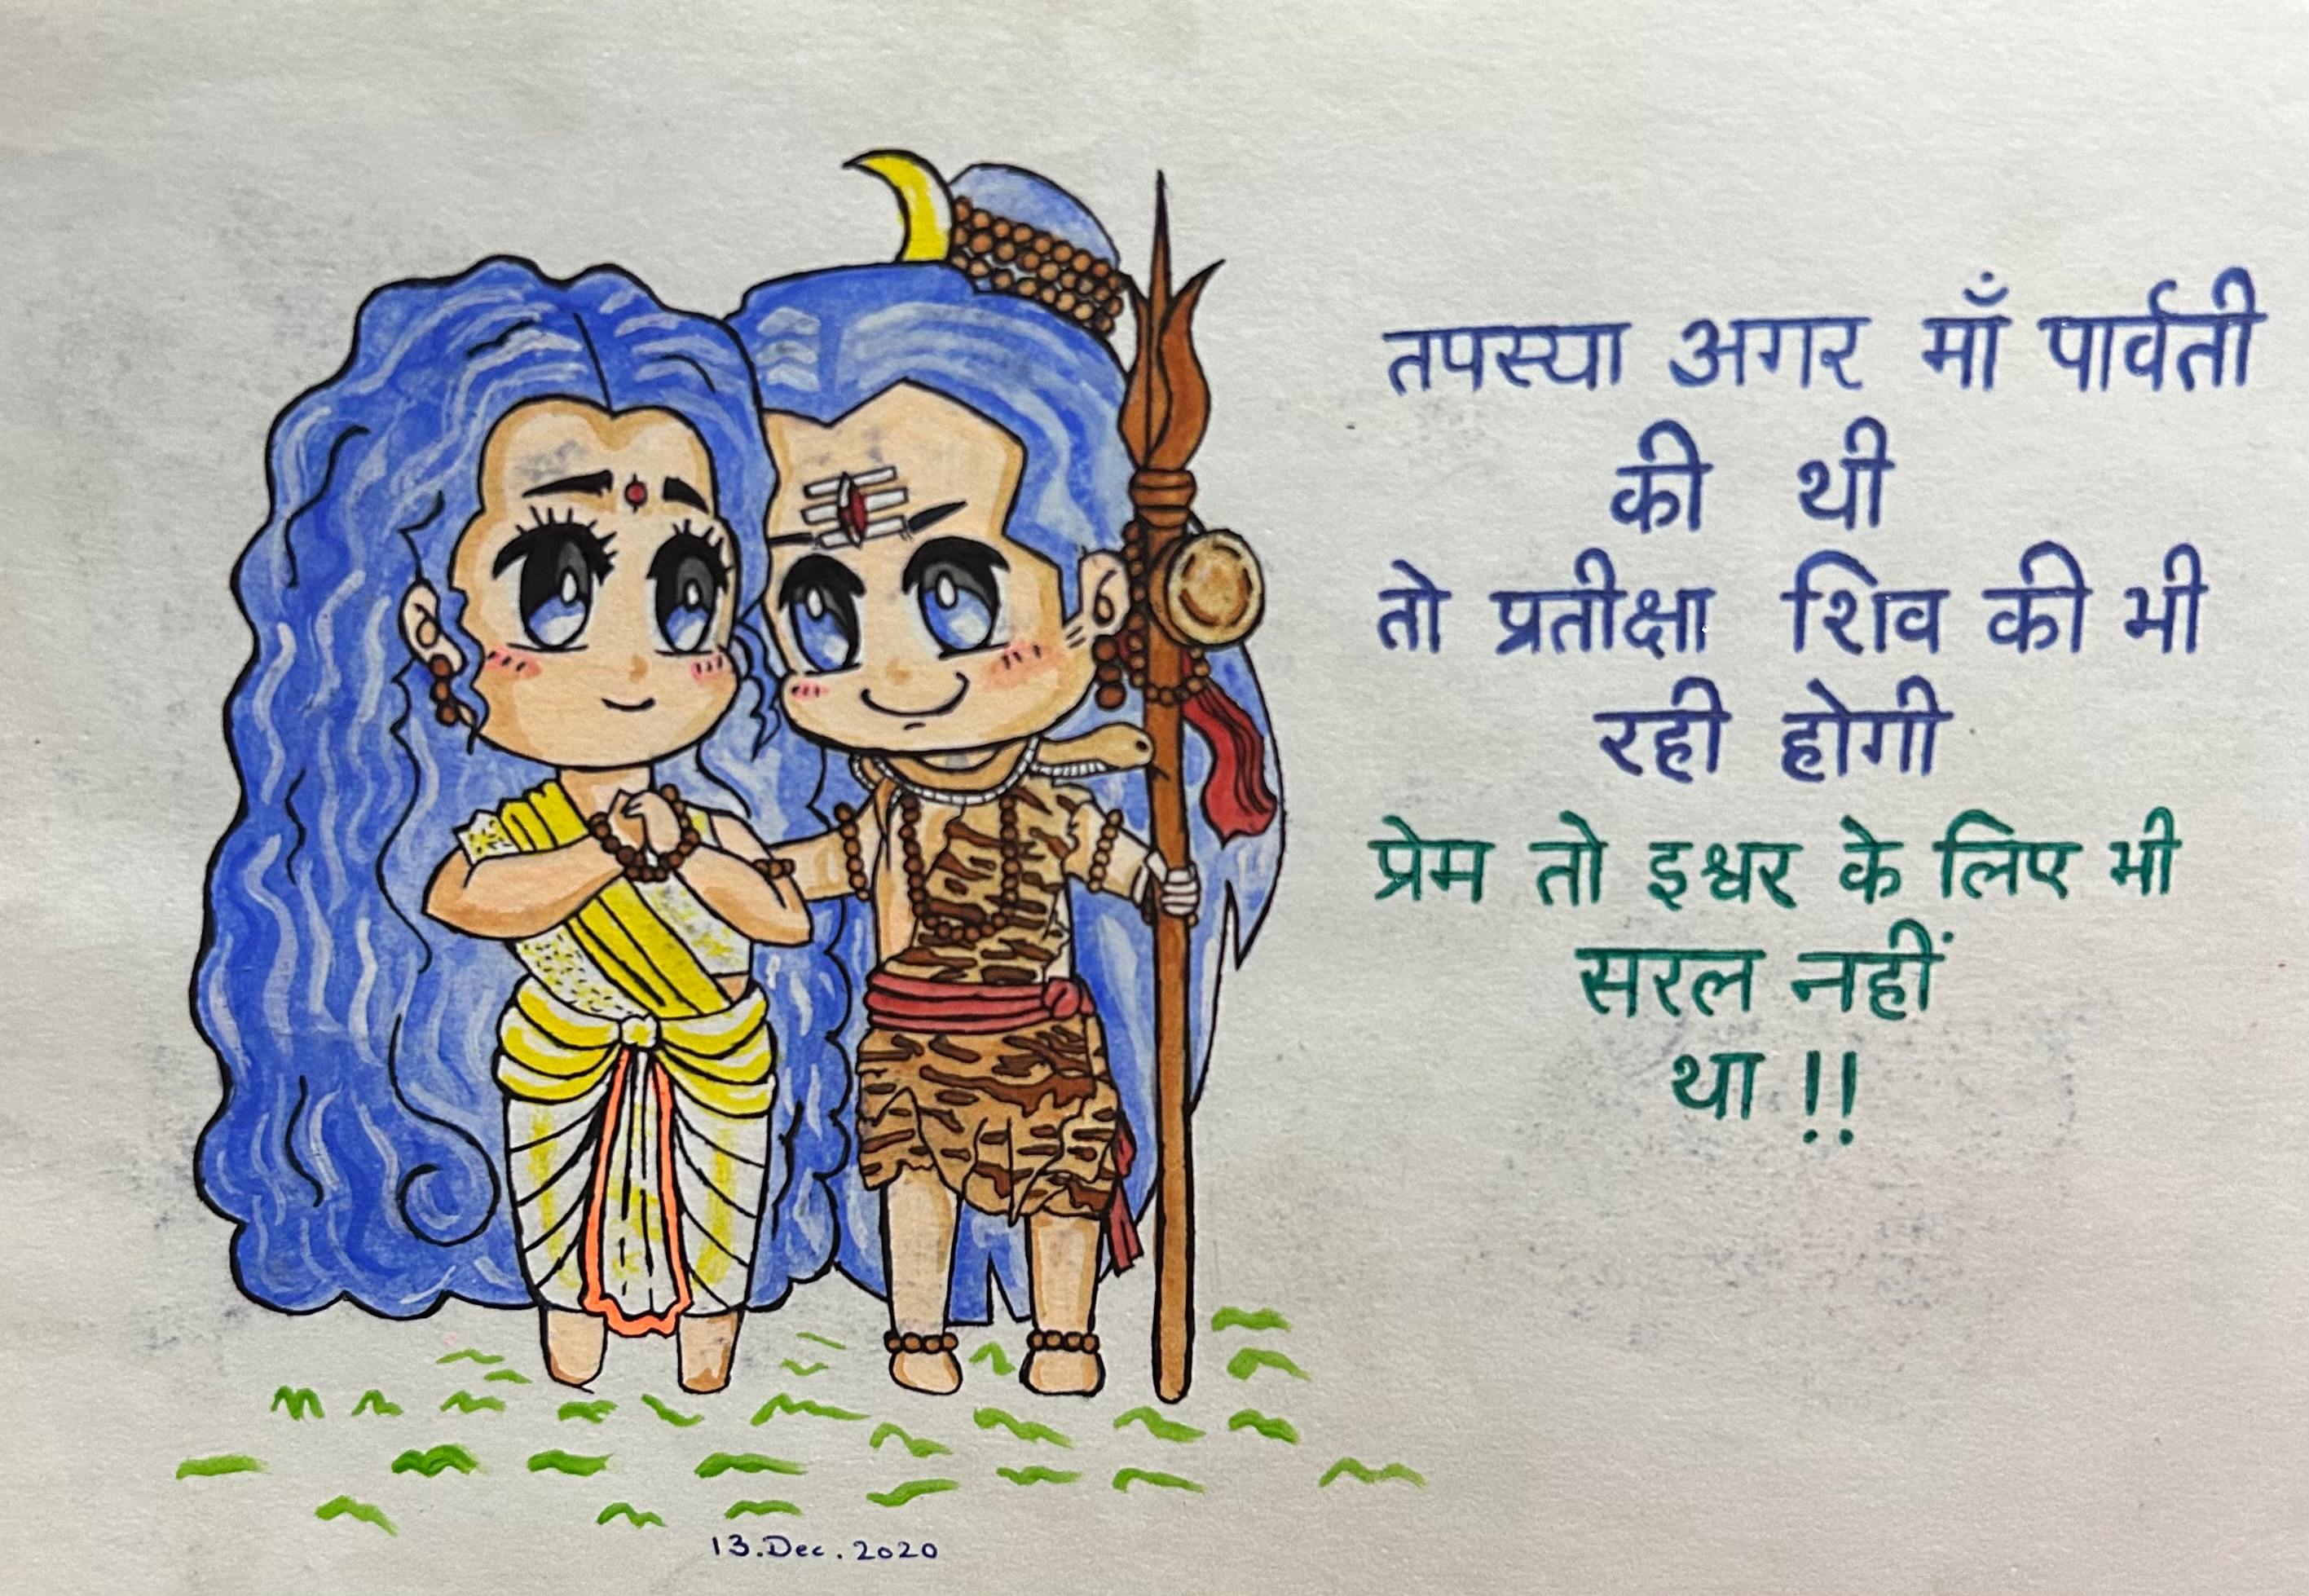 तपस्या अगर माँ पार्वती
की थी
तो प्रतीक्षा शिव की भी
रही होगी
प्रेम तो इश्वर के लिए भी
सरल नहीं
था !!
13.Dec.2020